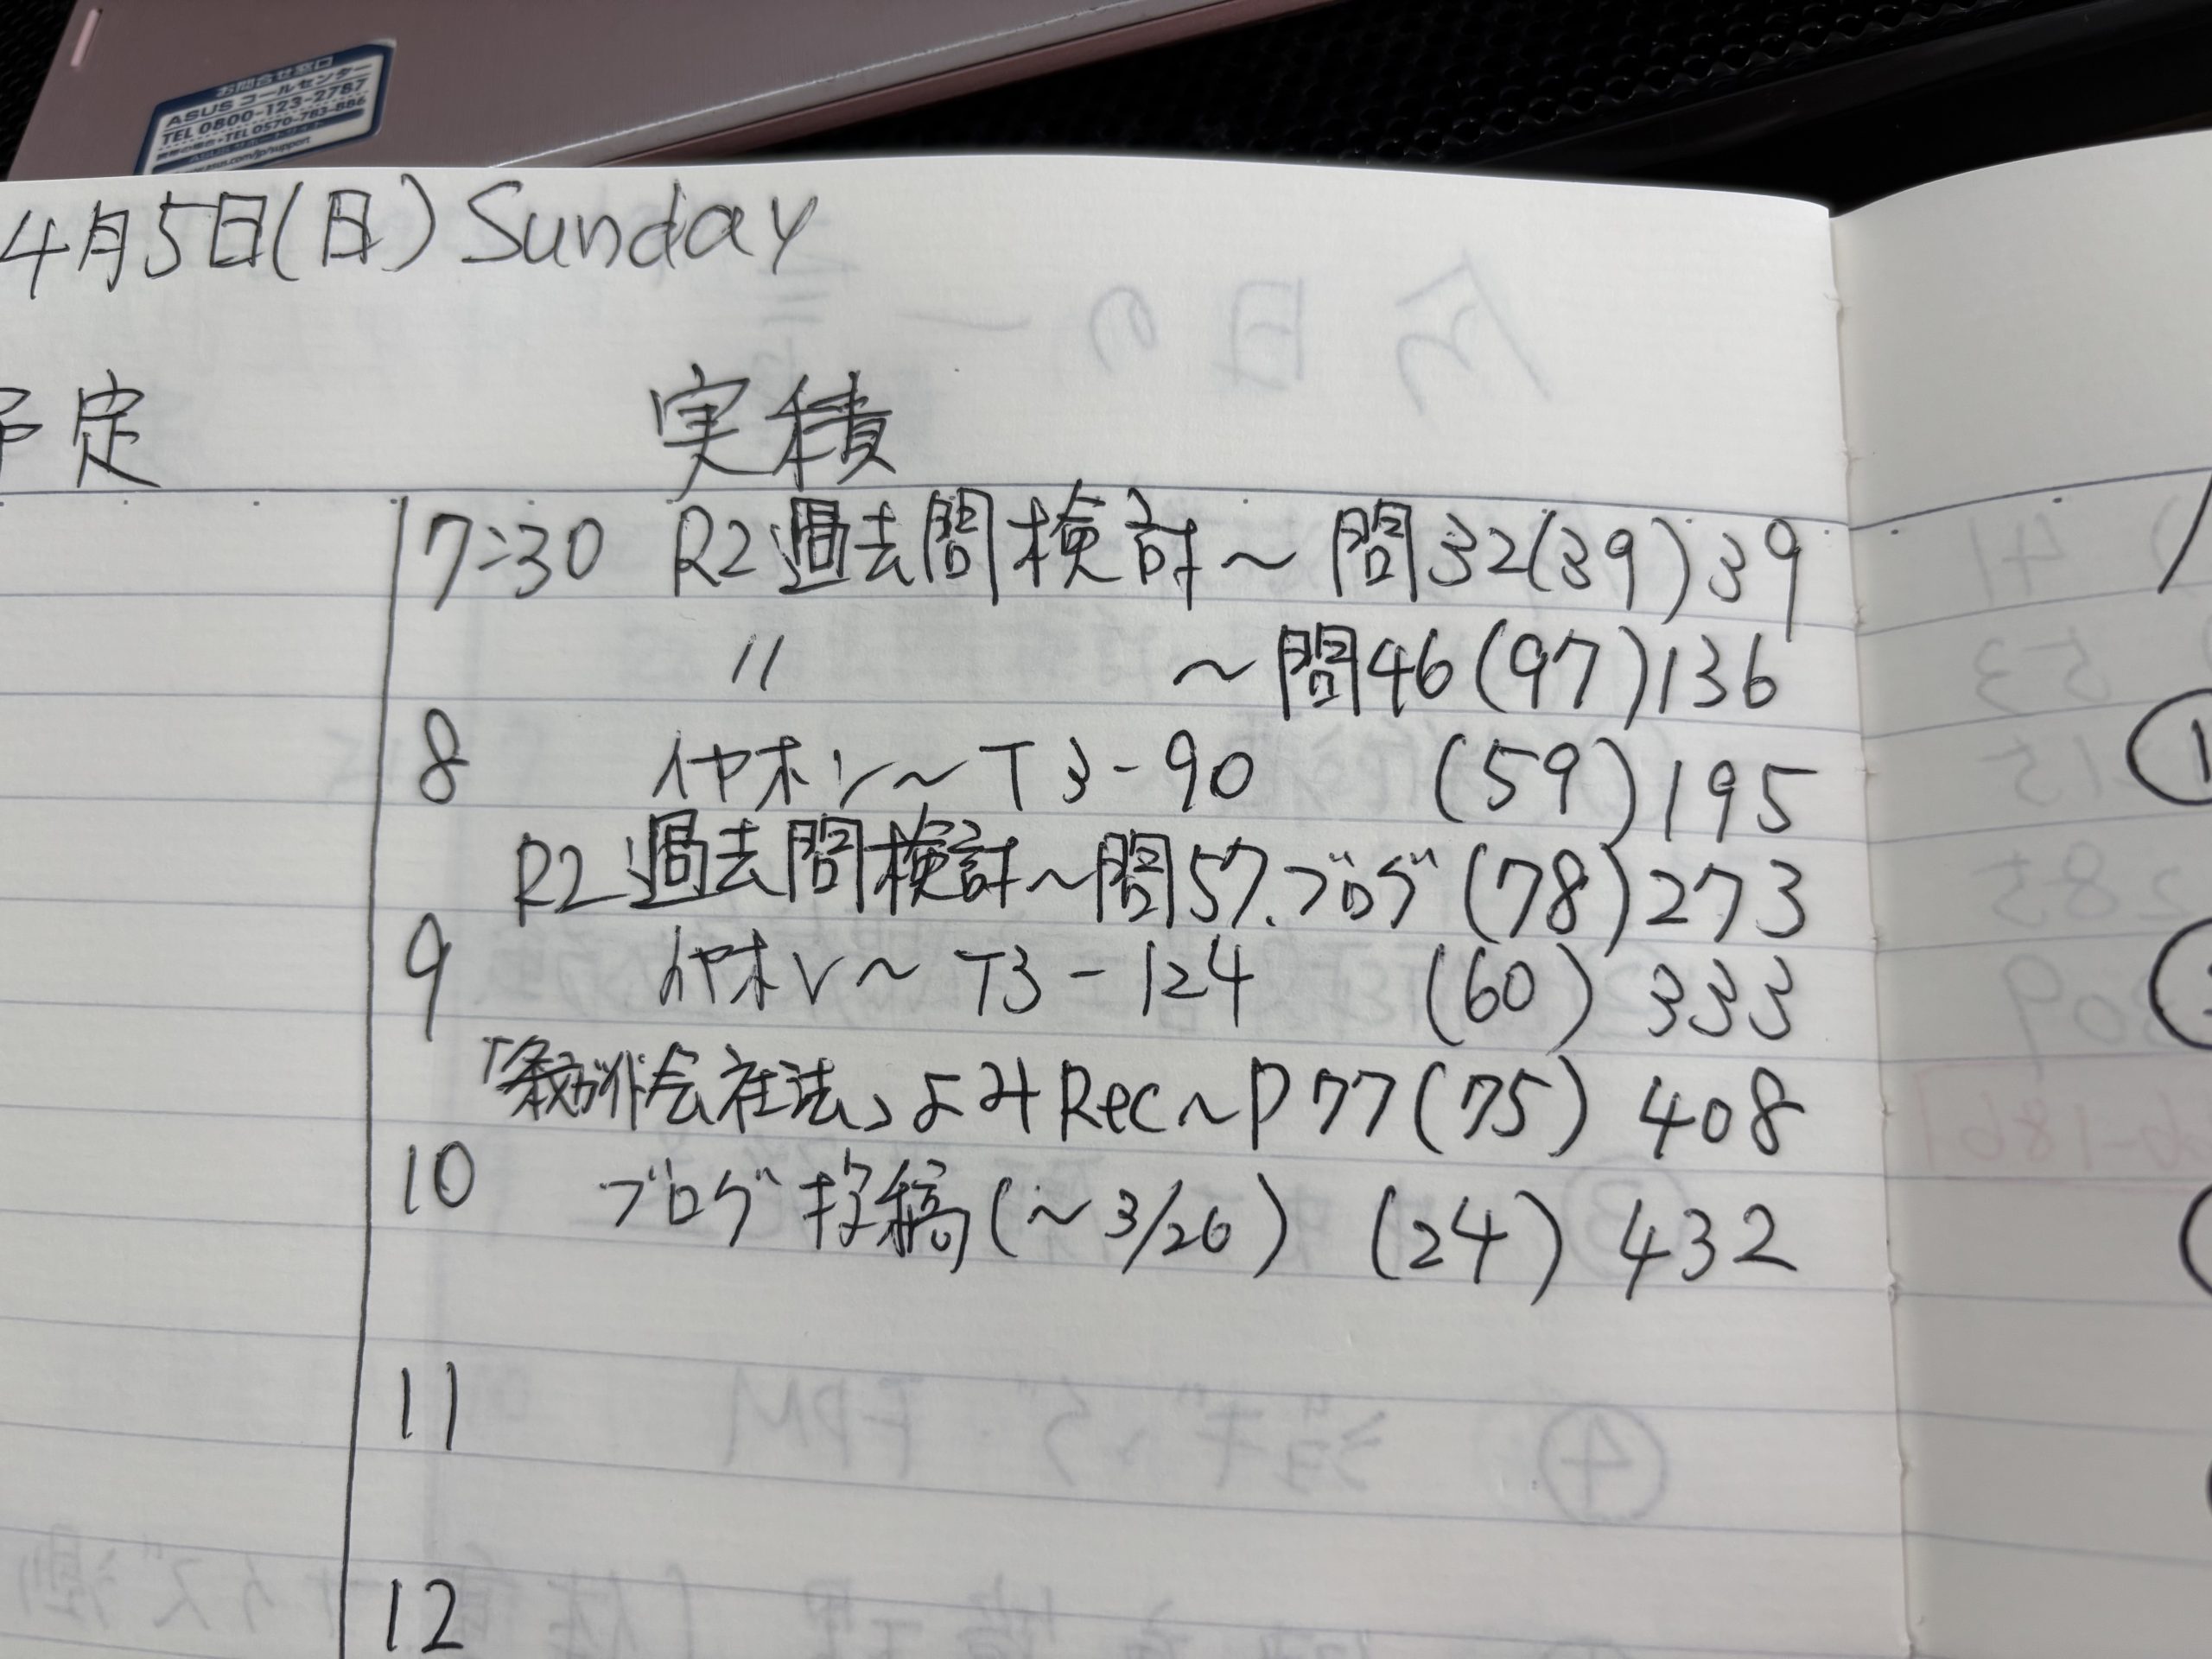 お問合せ窓口
ASUS コールセンター
TEL 0800-123-2787
TEL 0570-783-886
4月5日(日) Sunday
予定 実積
7:30 R2過去問検討～問32(39)39
〃 ～問46(97)136
8 イヤホン～T3-90 (59)195
R2過去問検討～問57.ブログ(78)273
9 イヤホン～T3-124 (60)333
「条文ガイド会社法」よみRec～P77(75)408
10 ブログ投稿(～3/26) (24)432
11
12